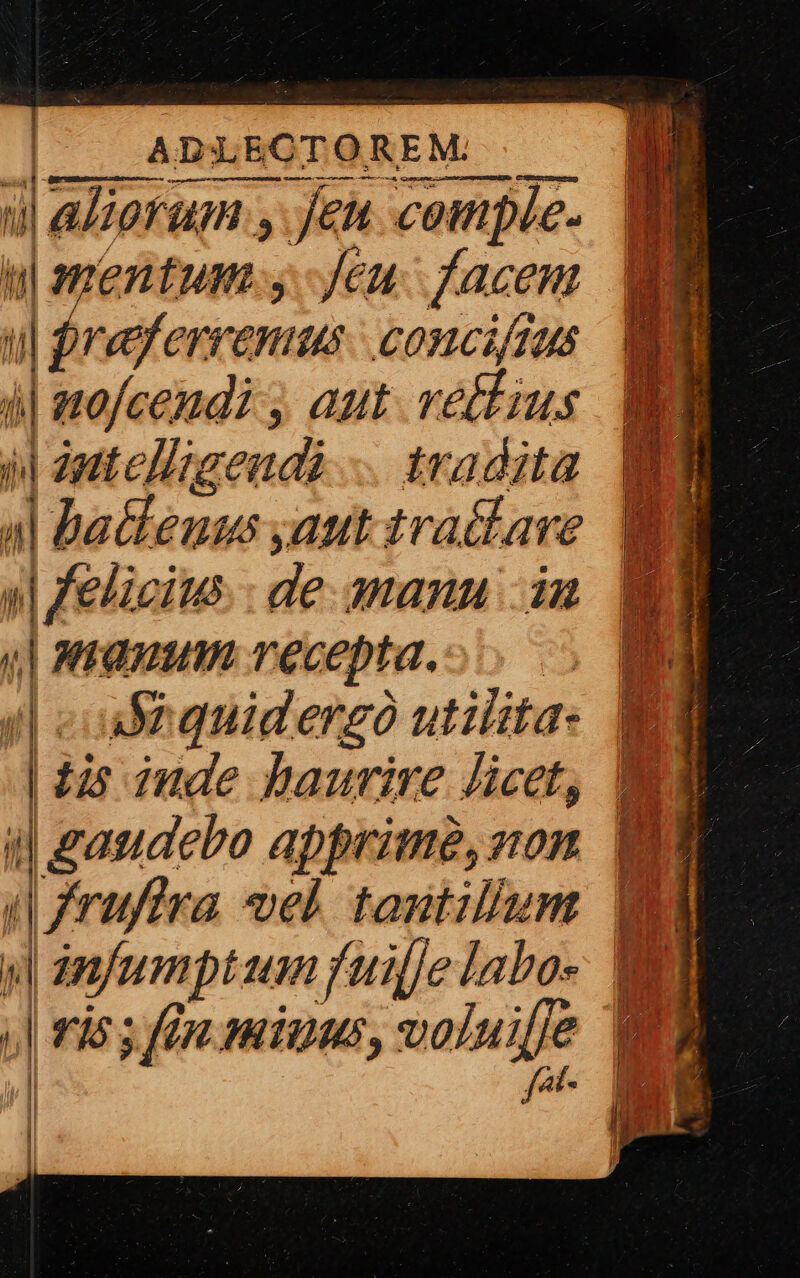 AD LECTOREM.
aliorum, ſeu comple-
mentum, ſeu facem
præferremus conciſius
noſcendi, aut rectius
intelligendi tradita
hactenus, aut tractare
felicius de manu in
manum recepta.
Si quid ergò utilita-
tis inde haurire licet,
gaudebo apprimè, non
fruſtra vel tantillum
inſumptum fuiſſe labo-
ris; ſin minus, voluiſſe
ſat-